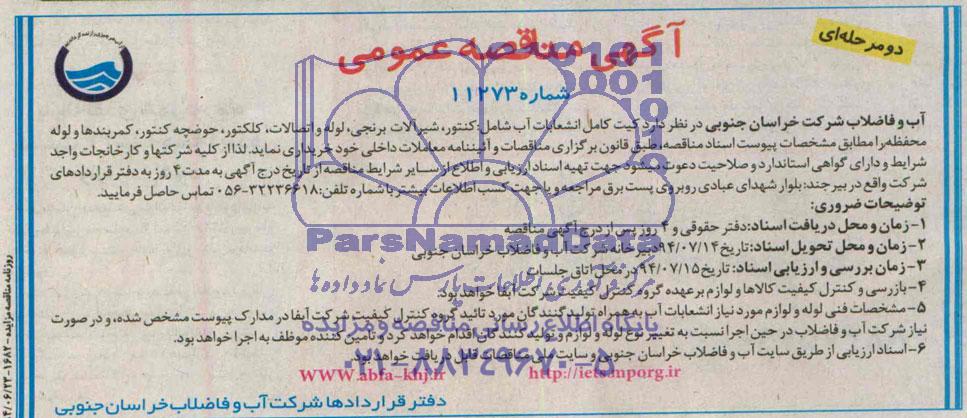 دومرحله‌ای
آگهی مناقصه عمومی
شماره ۱۱۲۷۳
آب و فاضلاب شرکت خراسان جنوبی در نظر دارد کیت کامل انشعابات آب شامل: کنتور، شیرآلات برنجی، لوله و اتصالات، کلکتور، حوضچه کنتور، کمربندها و لوله
محفظه را مطابق مشخصات پیوست اسناد مناقصه، طبق قانون برگزاری مناقصات و آئیننامه معاملات داخلی خود خریداری نماید. لذا از کلیه شرکتها و کارخانجات واجد
شرایط و دارای گواهی استاندارد و صلاحیت دعوت میشود جهت تهیه اسناد ارزیابی و اطلاع از سایر شرایط مناقصه از تاریخ درج آگهی به مدت ۴ روز به دفتر قراردادهای
شرکت واقع در بیرجند: بلوار شهدای عبادی روبروی پست برق مراجعه و یا جهت کسب اطلاعات بیشتر با شماره تلفن: ۳۲۲۳۶۶۱۸-۰۵۶ تماس حاصل فرمایید.
توضیحات ضروری:
۱- زمان و محل دریافت اسناد: دفتر حقوقی و ۴ روز پس از درج آگهی مناقصه
۲- زمان و محل تحویل اسناد: تاریخ ۹۴/۰۷/۱۴ دبیرخانه شرکت آب و فاضلاب خراسان جنوبی
۳- زمان بررسی و ارزیابی اسناد: تاریخ ۹۴/۰۷/۱۵ در محل اتاق جلسات
۴- بازرسی و کنترل کیفیت کالاها و لوازم بر عهده گروه کنترل کیفیت شرکت آبفا خواهد بود.
۵- مشخصات فنی لوله و لوازم مورد نیاز انشعابات آب به همراه تولید کنندگان مورد تائید گروه کنترل کیفیت شرکت آبفا در مدارک پیوست مشخص شده، و در صورت
نیاز شرکت آب و فاضلاب در حین اجرا نسبت به تغییر نوع لوله و لوازم و تولید کنندگان اقدام خواهد کرد و تامین کننده موظف به اجرا خواهد بود.
۶- اسناد ارزیابی از طریق سایت آب و فاضلاب خراسان جنوبی و سایت ملی مناقصات قابل دریافت خواهد بود.
WWW.abfa-khj.ir http://iets.mporg.ir
دفتر قراردادها شرکت آب و فاضلاب خراسان جنوبی
ParsNamadData
مرکز فرآوری اطلاعات پارس نماد داده‌ها
پایگاه اطلاع رسانی مناقصه و مزایده
۰۲۱-۸۸۳۴۹۶۷۰-۵
روزنامه مناقصه مزایده - ۱۶۸۲ - ۹۴/۰۶/۲۳